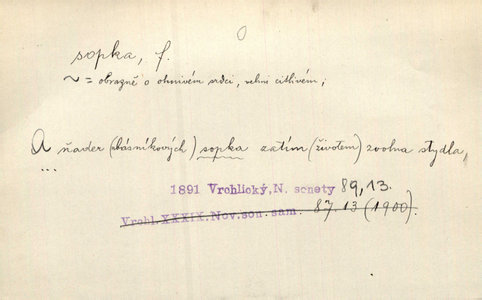 sopka, f.
~ = obrazně o ohnivém srdci, velmi citlivém;
A ňader (básníkových) sopka zatím (životem) zvolna stydla,
...
1891 Vrchlický, N. sonety 89, 13.
Vrchl. XXXIX. Nov. son. sam. 87, 13 (1900).